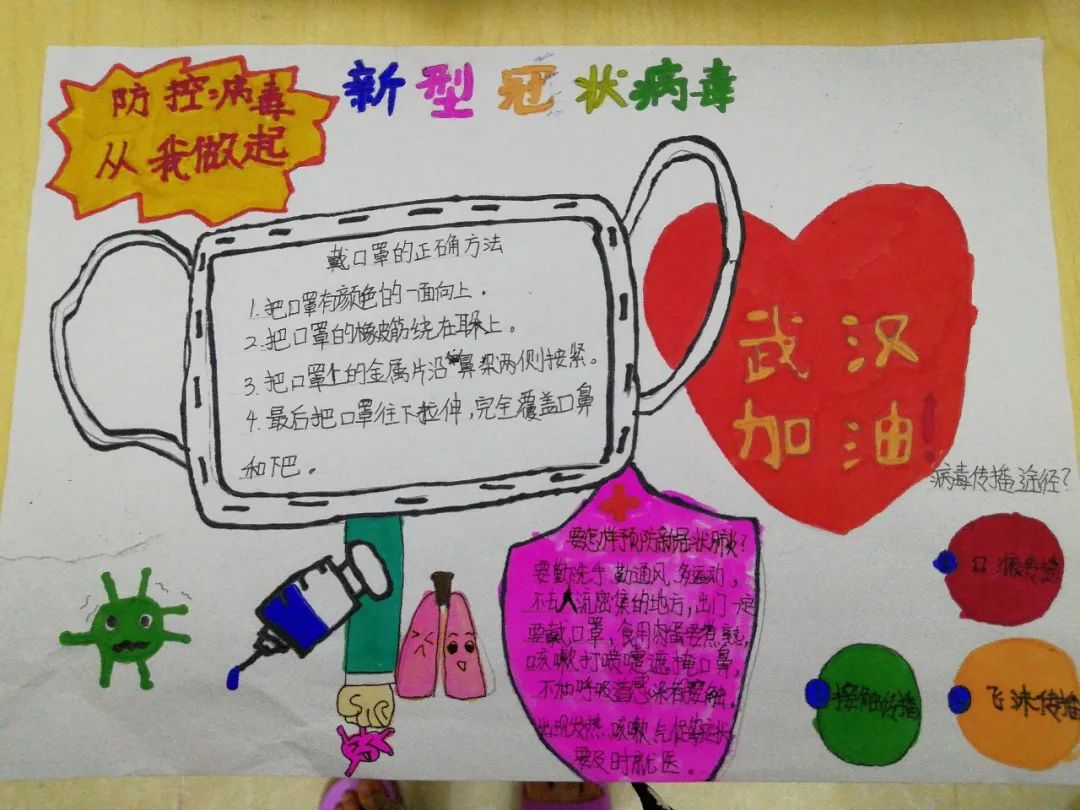 防控病毒
从我做起
新型冠状病毒
戴口罩的正确方法
1.把口罩有颜色的一面向上。
2.把口罩的橡皮筋绕在耳朵上。
3.把口罩上的金属片沿鼻梁两侧按紧。
4.最后把口罩往下拉伸,完全覆盖口鼻
和下巴。
武汉
加油!
要怎样预防新冠状肺炎?
要勤洗手、勤通风、多运动,
不去人流密集的地方,出门一定
要戴口罩,食用肉蛋要煮熟,
咳嗽打喷嚏遮掩口鼻,
不和呼吸道感染者接触。
出现发热、咳嗽、气促等症状
要及时就医。
病毒传播途径?
接触传播
飞沫传播